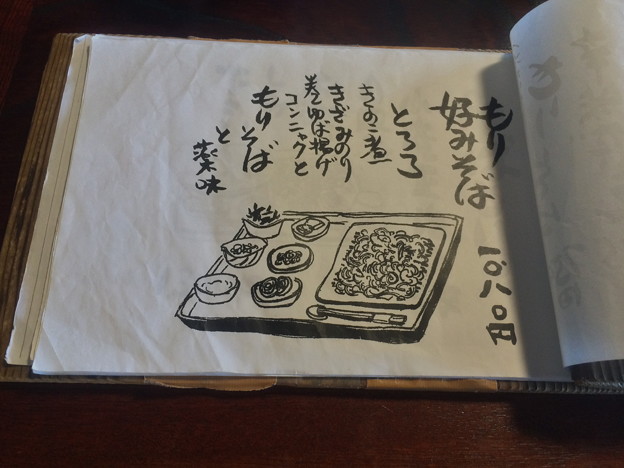 もり
好みそば
一〇八〇円
とろろ
きのこ煮
きざみのり
巻ゆば揚げ
コンニャクと
もりそば
と
薬味